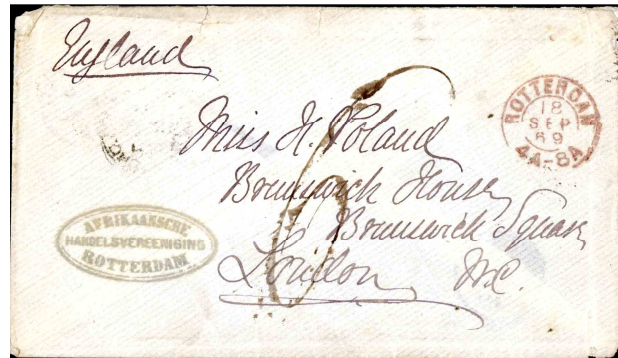 England
ROTTERDAM
18
SEP
69
4A-8A
Miss H. Poland
Brunswick House
Brunswick Square
London W.C.
AFRIKAANSCHE
HANDELSVEREENIGING
ROTTERDAM